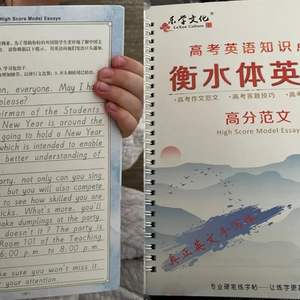 High Score Model Essays
on, everyone. May I ha
please?
hairman of the Students
New Year is around the
going to hold a New Year
which is intended to enable
better understanding of
arty, not only can you sing
but you will also compete
to see how skilled you are
icks. What's more, you'll
make dumplings at the party.
doesn't it? The party is
Room 101 of the Teaching
6:00 p.m. to 8:00 p.m.
ake sure you won't miss it.
your attention.
乐学文化
LeXue Culture
高考英语知识点
衡水体英
·高考作文范文 ·高考答题技巧
高分范文
High Score Model Essays
真正英文手写体
专业硬笔练字帖——让练字更